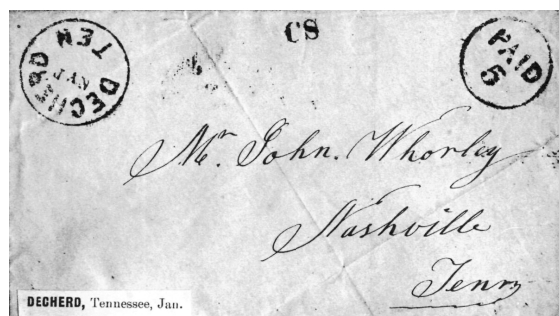 DECHERD TEN
JAN
CS
PAID
5
Mr. John. Whorley
Nashville
Tenn
DECHERD, Tennessee, Jan.